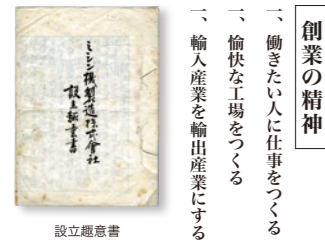 創業の精神
一、働きたい人に仕事をつくる
一、愉快な工場をつくる
一、輸入産業を輸出産業にする
ミシン機製造株式會社
設立趣意書
設立趣意書